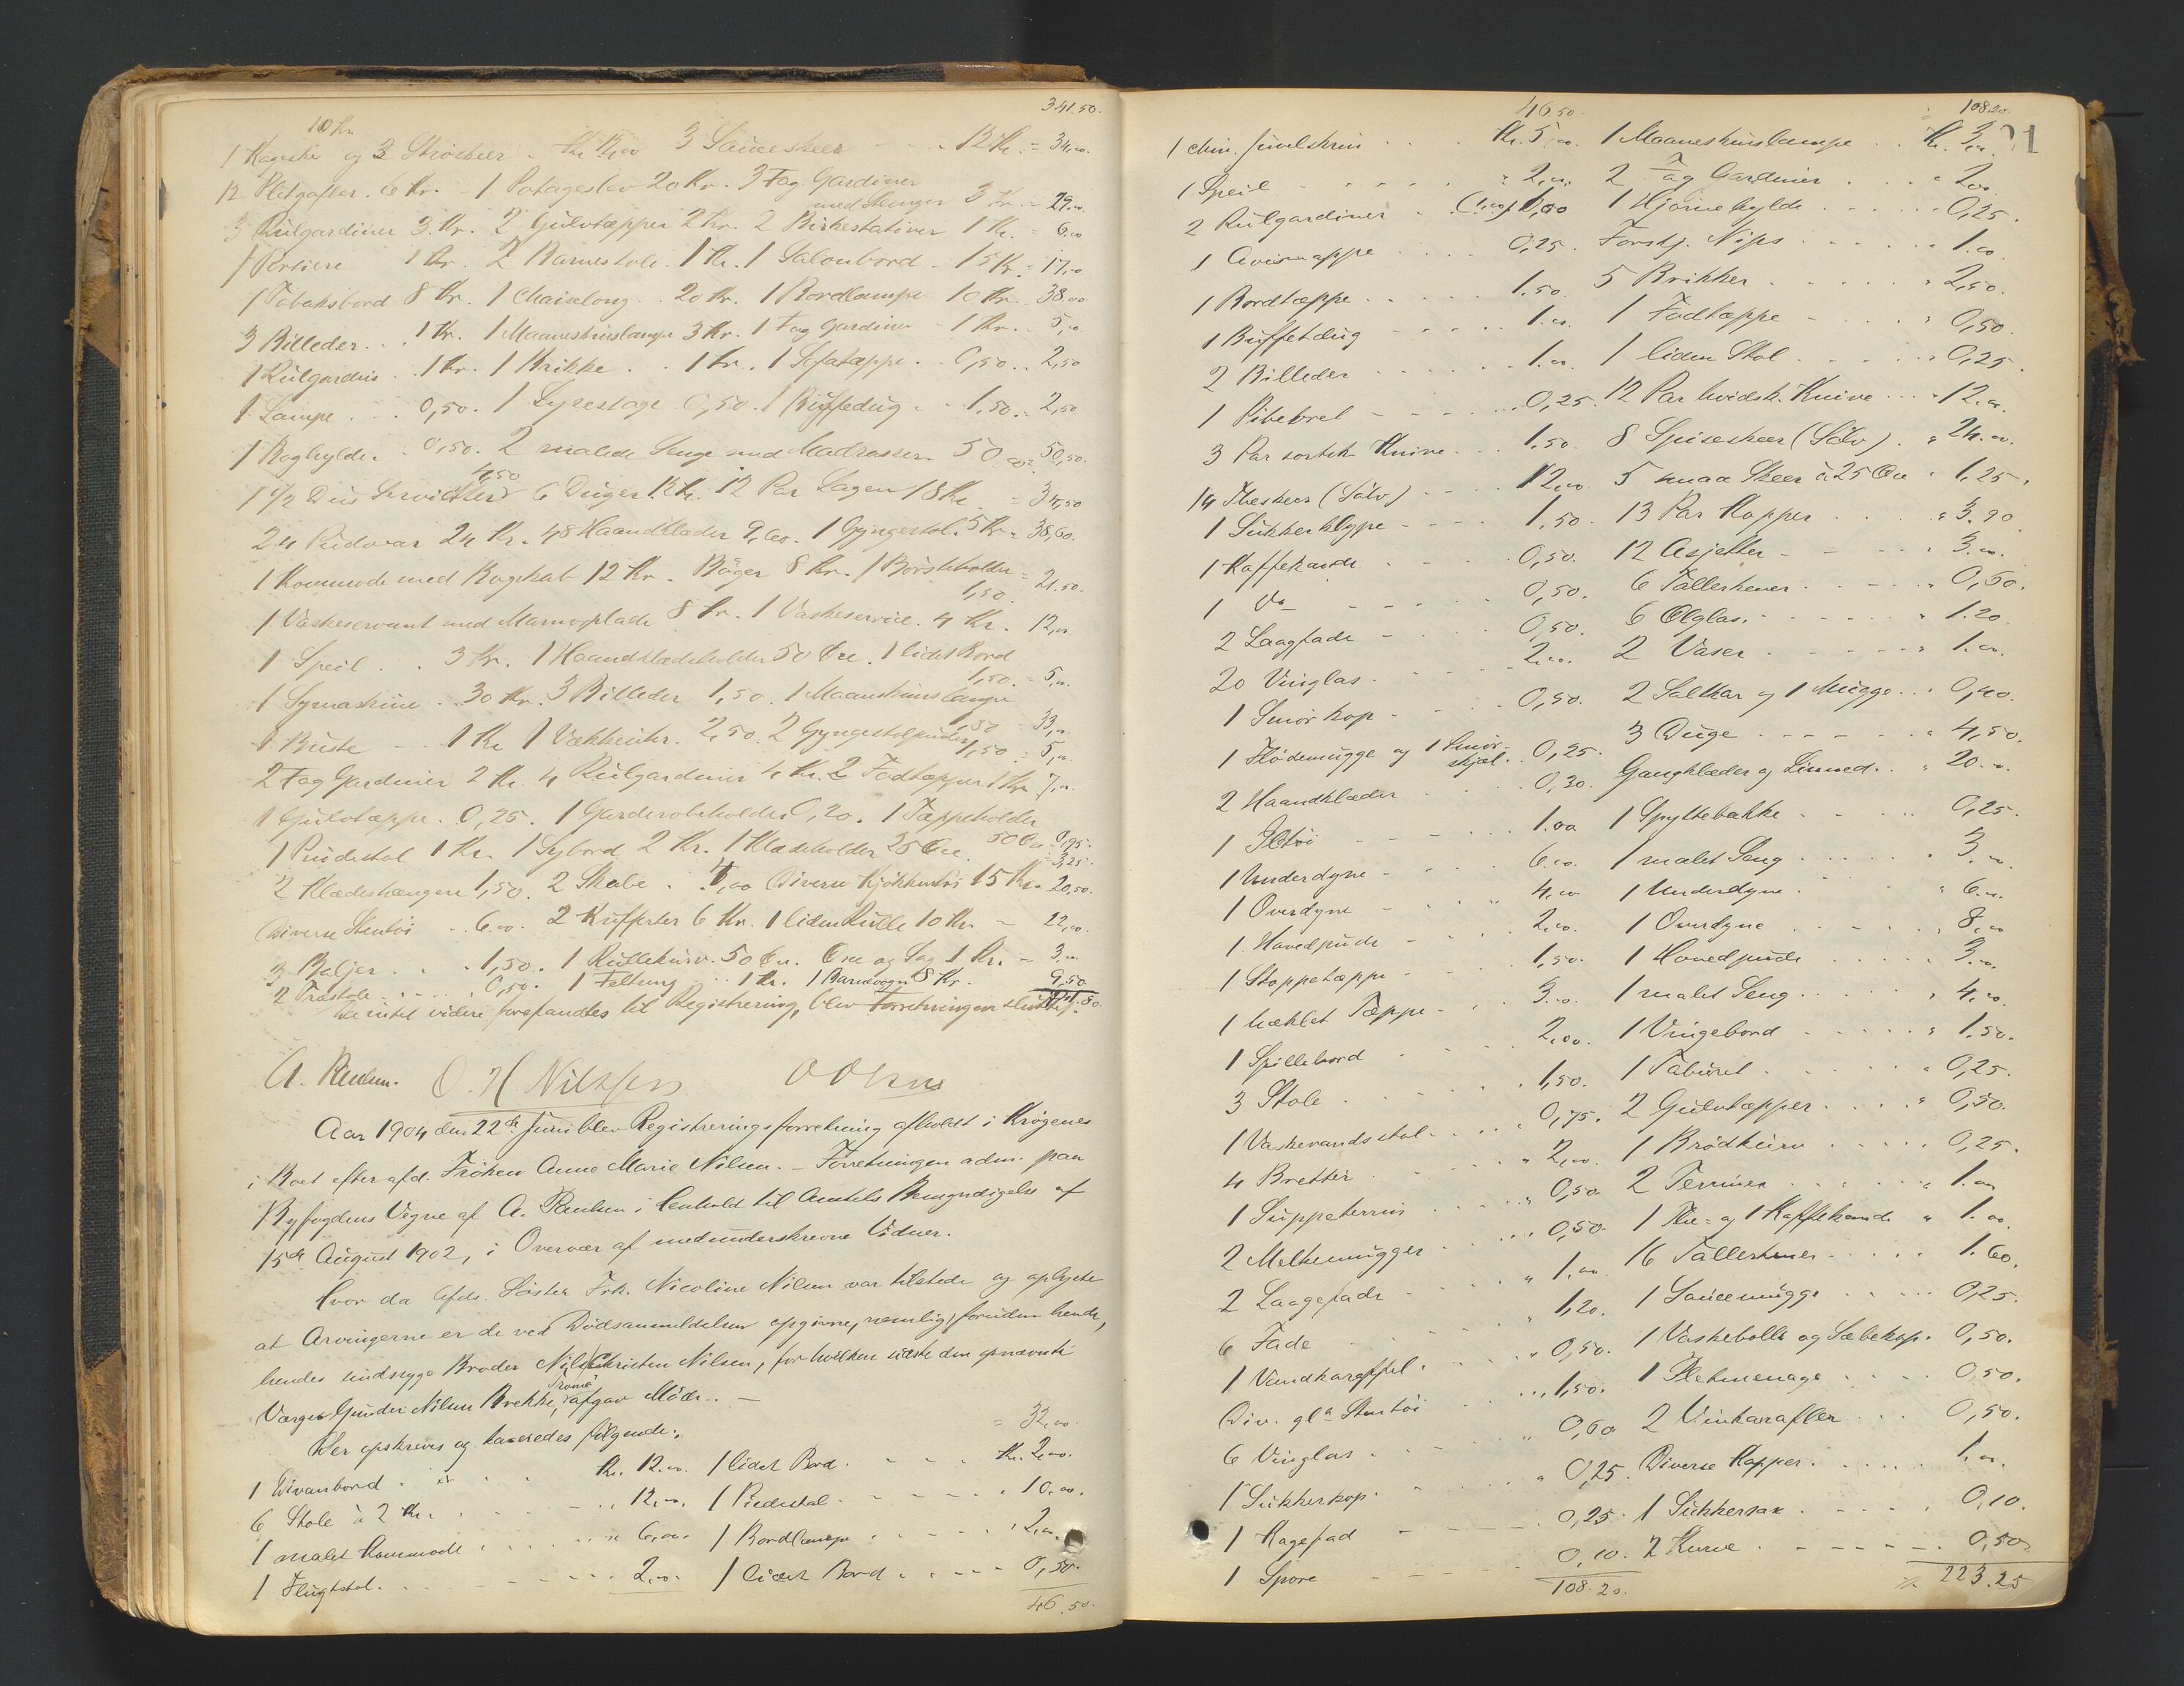 341.50.
10 Kr.
1 Kageske og 3 Ströskeer 3 Sauceskeer - - 12 Kr. = 34,00.
12 Pletgafler. 6 Kr. - 1 Potageslev 20 Kr. 3 Fag Gardiner
med Stenger 3 Kr. = 29.00.
3 Rulgardiner 3. Kr. 2 Gulvtæpper 2 Kr. 2 Birkestativer 1 Kr. = 6.00
1 Portiere 1 Kr. 2 Barnestole. 1 Kr. 1 Salonbord - 15 Kr. = 17,00
1 Tobaksbord 8 Kr. 1 Chaiselong . . 20 Kr. 1 Bordlampe 10 Kr. - 38.00
3 Billeder. . . 1 Kr. 1 Maaneskinslampe 3 Kr. 1 Fag Gardiner - 1 Kr. - 5,00
1 Rulgardin . . 1 Kr. 1 Brikke . . 1 Kr. 1 Sofatæppe . . 0,50. . 2,50
1 Lampe . . . 0,50. 1 Lysestage 0,50. 1 Buffedug . . 1,50. = 2,50
1 Boghylde. . 0,50. 2 malede Senge med Madrasser. 50.00 = 50,50.
4,50
1 1/2 Dus Servietter 6 Duger 12 Kr. 12 Par Lagen 18 Kr. = 34,50
24 Pudevar 24 Kr. 48 Haandklæder 9,60. 1 Gyngestol. 5 Kr. = 38,60.
1 Kommode med Bogskab 12 Kr. Böger 8 Kr. 1 Börsteholder
1,50. = 21.50.
1 Vaskeservant med Marmorplade 8 Kr. 1 Vaskeservice. 4 Kr. 12,00
1 Speil . . 3 Kr. 1 Haandklædeholder 50 Öre. 1 lidet Bord
1,50. = 5,00.
1 Symaskine . . 30 Kr. 3 Billeder 1,50. 1 Maaneskinslampe
1,50 = 33,00.
1 Buste - . . 1 Kr. 1 Vækkeuhr. 2,50. 2 Gyngestolpuder
1,50 = 5,00.
2 Fag Gardiner 2 Kr. 4 Rulgardiner 4 Kr. 2 Fodtæpper 1 Kr. 7,00.
1 Gulvtæppe. 0,25. 1 Garderobeholder 0,20. 1 Tæppeholder
50 Öre 0,95.
1 Piedestal 1 Kr. 1 Sybord 2 Kr. 1 Klædeholder 25 Öre. = 3,25.
2 Klædeshængere 1,50. 2 Skabe . . 4,00 Diverse Kjökkentöi 15 Kr. 20,50.
Diverse Stentöi . . 6.00. 2 Kufferter 6 Kr. 1 liden Rulle 10 Kr. - 22,00.
3 Baljer. . . . 1,50. 1 Rullekurv. 50 Öre. Öxe og Sag 1 Kr. - 3.00
2 Træstole . . . . . 0,50. 1 Feltseng . . 1 Kr. 1 Barnevogn 8 Kr. 9,50
Da intet videre forefandtes til Registrering, blev Forretningen sluttet.
A. Paulsen. O. H. Nilssen
Aar 1904 den 22de Juni blev Registreringsforretning afholdt i Krögenes
i Boet efter afd. Fröken Anne Marie Nilsen. - Forretningen adm. paa
Byfogdens Vegne af A. Paulsen i Henhold til Amtets Bemyndigelse af
15de August 1902, i Overvær af medunderskrevne Vidner.
Hvor da Afds. Söster Frk. Nicoline Nilsen var tilstede og oplyste
at Arvingerne er de ved Dödsanmeldelsen opgivne, nemlig, foruden hende,
hendes sindsyge Broder Nils Christen Nilsen, for hvilken sidste den opnævnte
Tromö
Værge Gunder Nilsen Brekke, afgav Möde. . -
Der opskreves og taxeredes fölgende:
= 32,00.
1 Divanbord . . . . Kr. 12.00. 1 lidet Bord . . . . Kr. 2,00.
6 Stole à 2 Kr. . . . - . . 12,00. 1 Piedestal . - - - . 10.00.
1 malet Kommode . . . . . 6,00. 1 Bordlampe . . . . . 2,00.
1 Flugtstol. . . - - - - . . 2,00. 1 lidet Bord . . . - - 0,50.
46,50.
46.50.
1 chin. Juvelskrin . . . Kr. 5,00.
1 Speil - - - - - 2,00.
2 Rulgardiner . 1,00
1 Avismappe . . . . 0,25.
1 Bordtæppe . . . . . 1.50.
1 Buffetdug - - - - . . 1.00.
2 Billeder . . . . . . 1.00
1 Pibebret - - - . . 0,25.
3 Par sortsk. Knive. . . . 1.50.
14 Theskeer (Sölv) . . . . 12,00
1 Sukkerklype - - - - 1.50.
1 Kaffekande - - - - 0,50.
1 Do - - - - - 0,50.
2 Laagfade - - - - 0,50.
20 Vinglas. - - - - 2,00.
1 Smörkop - - - - 0,50.
1 Flödemugge og 1 Smör-
skjæl. . 0,25.
2 Haandklæder - - - 0,30.
1 Iltöi - - - . . . 1.00
1 Underdyne - - - . 6.00.
1 Overdyne - - - . . 4.00
1. Hovedpude - - - . 2,00.
1 Stoppetæppe - . . . 1,50.
1 hæklet Tæppe - . . . 3.00.
1 Spillebord . - - - 2,00.
3 Stole . . . . . 1,50.
1 Vaskevandsstol. . . . . 0,75.
4 Bretter . . . . . 2,00.
1 Suppeterrin . . . . . 0,50.
2 Melkemugger . . . . 0,50.
2 Laagefade - - - . . 1.00.
6 Fade . . . . . . 1,20.
1 Vandkaraffel. . . . . 0,50.
Div. gl. Stentöi . . . . . 1,50.
6 Vinglas . . . . . . 0,60
1 Sukkerkop. . . . . 0,25.
1 Kagefad - - - - - 0,25.
1 Spore - - - - - 0,10.
108.20.
108.20
1 Maaneskinslampe . . Kr. 3,00.
2 Fag Gardiner . . . 2,00.
1 Hjörnehylde - . . . . 0,25.
Forskj. Nips . . . . 1.00
5 Brikker . . . . . . 2,50.
1 Fodtæppe - . . - . 0,50.
1 liden Stol . . . . . . 0,25.
12 Par hvidsk. Knive . . . 12.00.
8 Spiseskeer (Sölv) . . 24.00.
5 smaa Skeer à 25 Öre . 1,25.
13 Par Kopper . . . . 3.90
12 Asjetter - - - - 3.00.
6 Tallerkener. . - - . 0,60.
6 Ölglas. - - - - - 1.20.
2 Vaser . . . . . - 1.00.
2 Saltkar og 1 Mugge . . 0,40.
3 Duge . . - - - - 4,50.
Gangklæder og Linned. . . 20.00.
1 Spyttebakke . - - . . 0,25.
1 malet Seng . . . . . 3.00
1 Underdyne . . . . . 6.00.
1 Overdyne - - - . . 8,00
1 Hovedpude . . . . . 3.00.
1 malet Seng . . . . . 4.00.
1 Vingebord . . . . . 1.50.
1 Taburet . . . . . . 0,25.
2 Gulvtæpper . . . . . 0,50.
1 Brödkurv . . . . . . 0,25.
2 Terriner . . . . . 1.00
1 The- og 1 Kaffekande . 1.00.
16 Tallerkener . . . . . 1.60.
1 Saucemugge . . . . . 0,25.
1 Vaskebolle og Sæbekop. 0,50.
1 Pletmenage . . . . . 0,50.
2 Vinkarafler . . . 0,50.
Diverse Kopper. . . . . 1.00.
1 Sukkersax . . . . . . 0,10.
2 Kurve . - - - - - 0,50
223.25